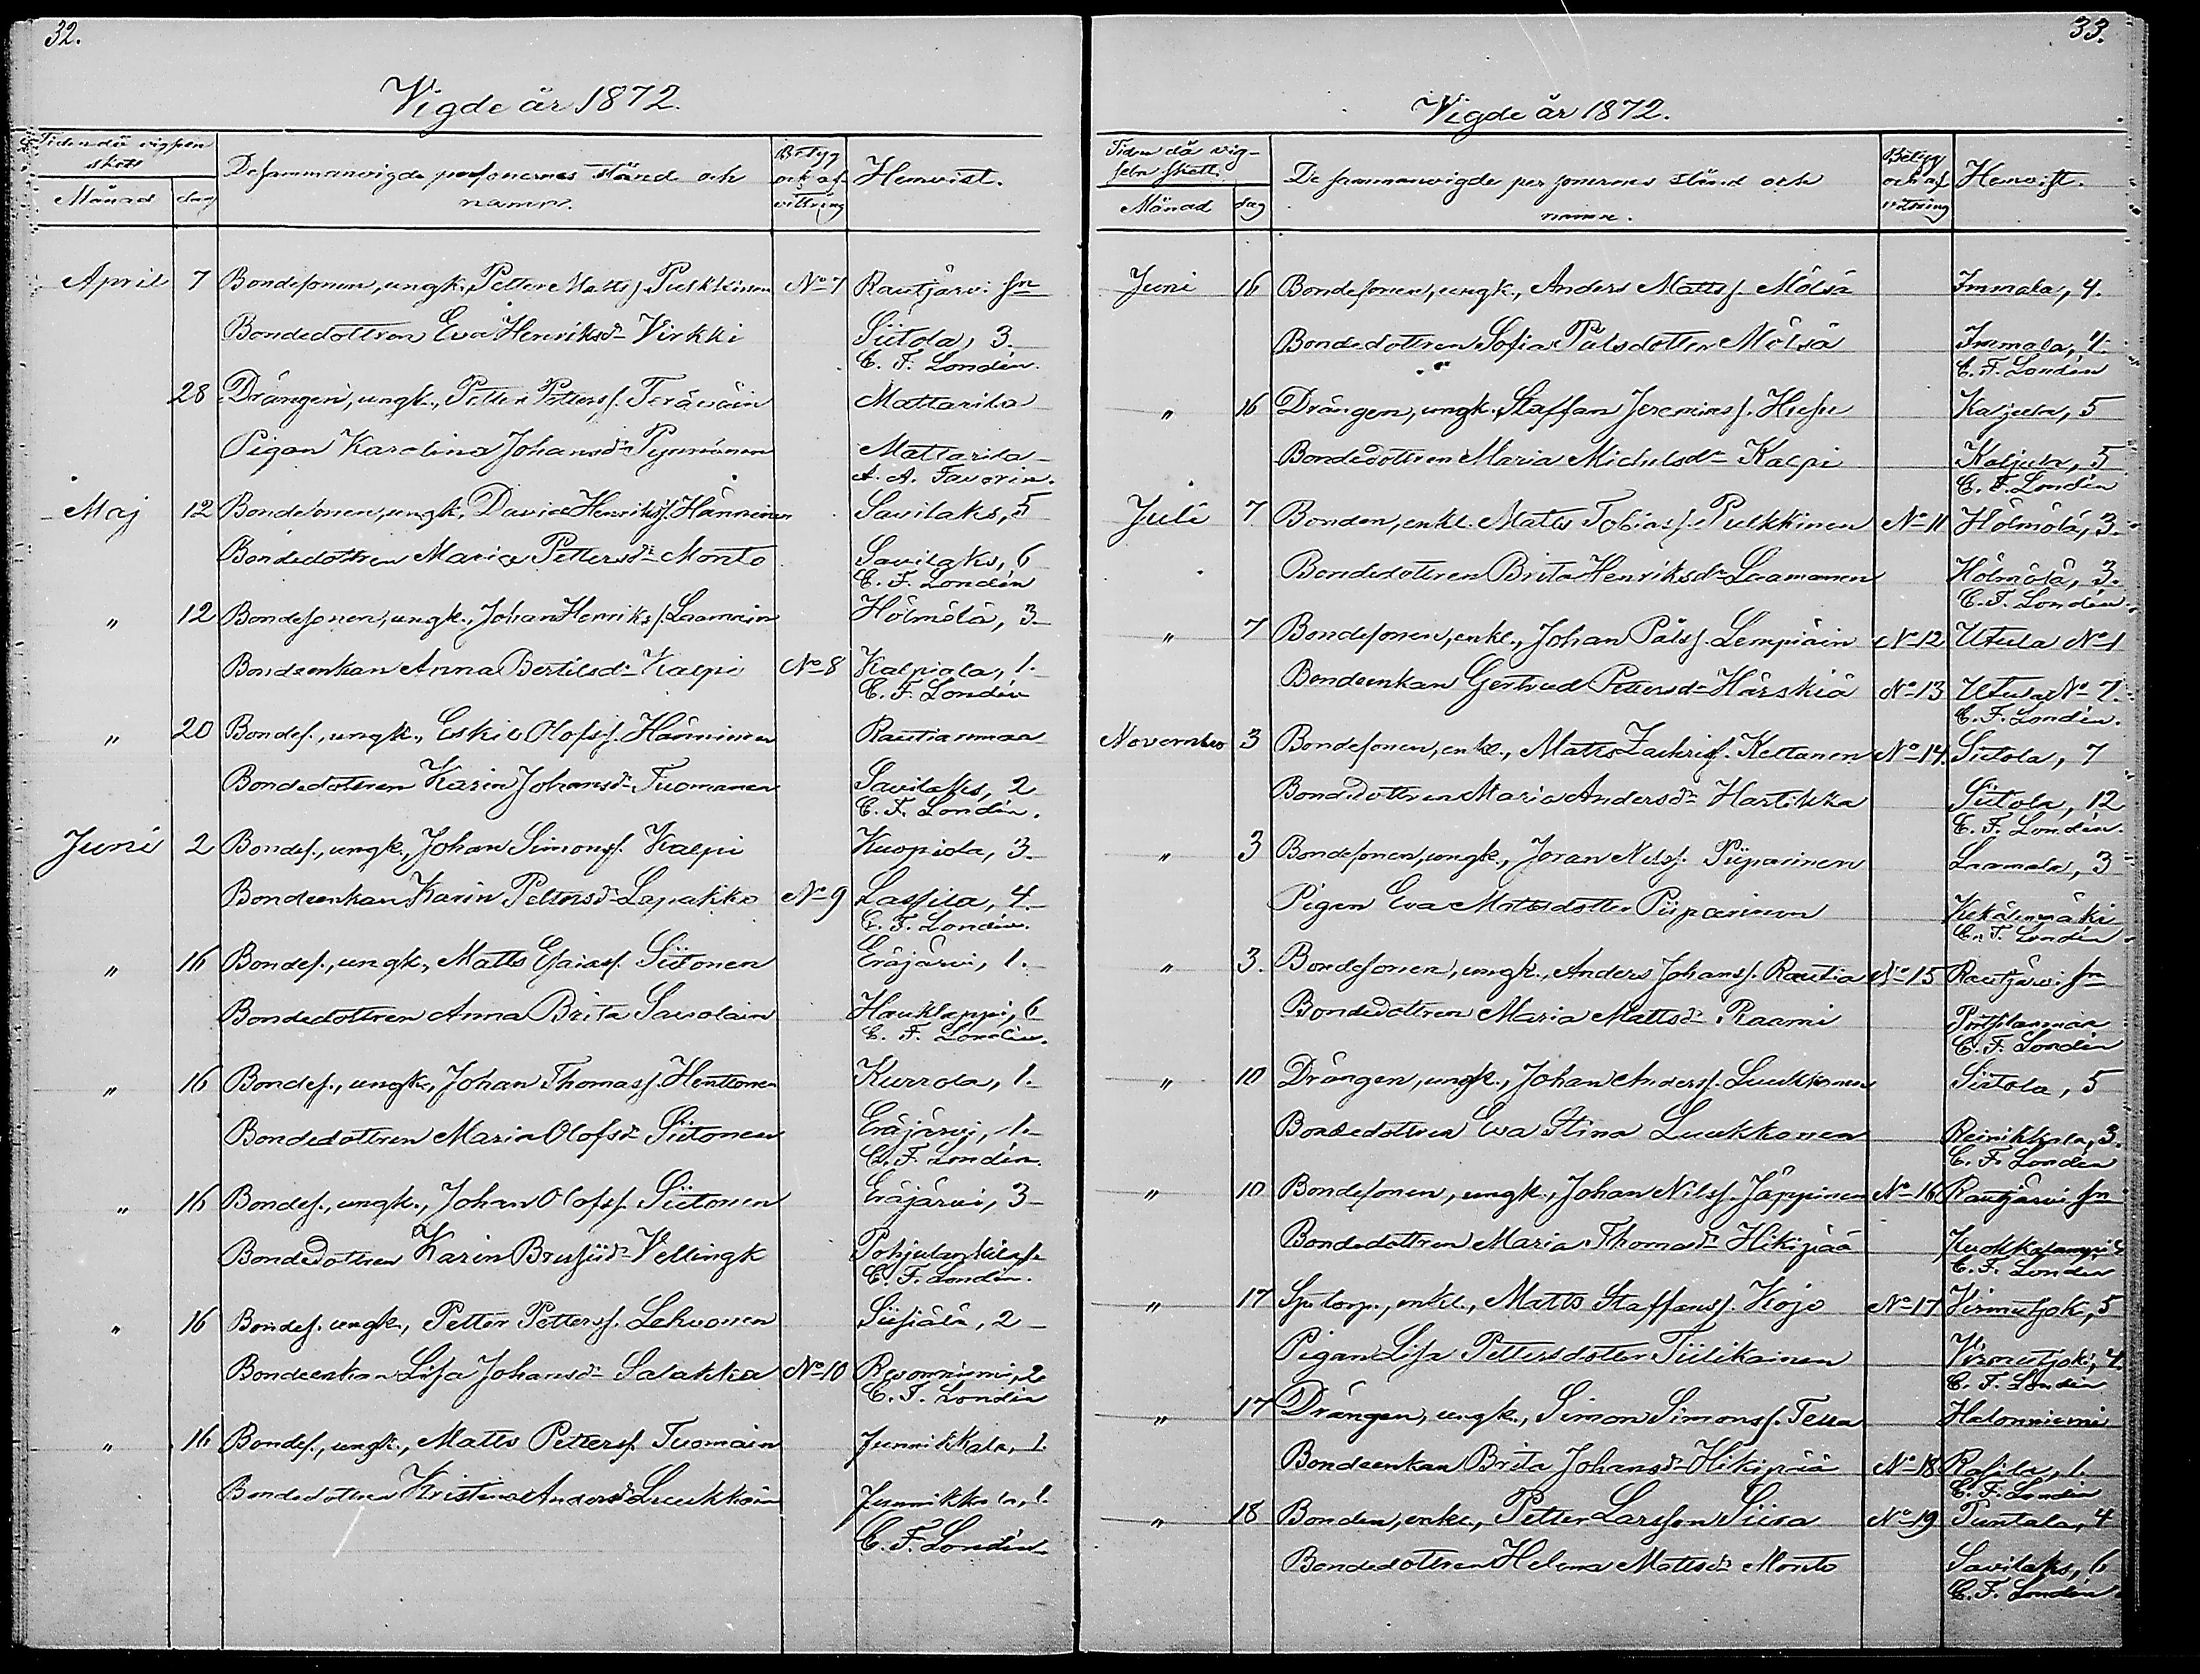 32.
Vigde år 1872.
Tiden då vigseln skett
Månad dag
De sammanvigde personernes stånd och namn.
Betyg och af-vittring
Hemvist.
April 7 Bondesonen, ungk., Petter Matts s. Pulkkinen No 7 Rautjärvi sn
Bondedottren Eva Henriksdr Virkki Siitola, 3.
C. F. Londén.
28 Drängen, ungk., Petter Petters s. Teräväin Mattarila
Pigan Karolina Johansdr Pynnönen Mattarila
A. A. Favorin.
Maj 12 Bondesonen, ungk., David Henriks s. Hänninen Savilaks, 5
Bondedottren Maria Pettersdr Monto Savilaks, 6
C. F. Londén
" 12 Bondesonen, ungk., Johan Henriks s. Laamain Hölmölä, 3
Bondeenkan Anna Bertilsdr Kalpi No 8 Kalpiala, 1.
C. F. Londén
" 20 Bondes., ungk., Eskil Olofs s. Hänninen Rautianmaa
Bondedottren Karin Johansdr Tuomanen Savilaks, 2
C. F. Londén.
Juni 2 Bondes., ungk., Johan Simons s. Kalpi Kuopiola, 3.
Bondeenkan Karin Pettersdr Lapakko No 9 Lassila, 4.
C. F. Londén.
" 16 Bondes., ungk., Matts Esaias s. Siitonen Eräjärvi, 1.
Bondedottren Anna Brita Savolain Haukloppi, 6
C. F. Londén.
" 16 Bondes., ungk., Johan Thomas s. Henttonen Kurrola, 1.
Bondedottren Maria Olofsdr Siitonen Eräjärvi, 1.
C. F. Londén.
" 16 Bondes., ungk., Johan Olofs s. Siitonen Eräjärvi, 3
Bondedottren Karin Vellingk
C. F. Londén.
" 16 Bondes. ungk., Petter Petters s. Lehvonen Siisiälä, 2
Bondeenkan Lisa Johansdr Salakka No 10 Resonniemi, 2
C. F. Londén
" 16 Bondes., ungk., Matts Petters s. Tuomain Junnikkala, 1.
Bondedottren Kristina Andersdr Luukkain Junnikkala, 1.
C. F. Londén
33.
Vigde år 1872.
Tiden då vig-seln skett.
Månad dag
De sammanvigde personernes stånd och namn.
Betyg och af vittring
Hemvist.
Juni 16 Bondesonen, ungk., Anders Matts s. Mölsä Immala, 4.
Bondedottren Sofia Pålsdotter Mölsä Immala, 4.
C. F. Londén
" 16 Drängen, ungk., Staffan Jeremias s. Husu Kaljula, 5
Bondedottren Maria Michelsdr Kalpi Kaljula, 5
C. F. Londén
Juli 7 Bonden, enkl. Matts Tobias s. Pulkkinen No 11 Hölmölä, 3.
Bondedottren Brita Henriksdr Laamanen Hölmölä, 3.
C. F. Londén.
" 7 Bondesonen, enkl., Johan Påls s. Lempiäin No 12 Utula No 1
Bondeenkan Gertrud Pettersdr Härskiä No 13 Utula No 7.
C. F. Londén.
November 3 Bondesonen, enkl., Matts Zachris s. Keltanen No 14 Siitola, 7
Bondedottren Maria Andersdr Hartikka Siitola, 12
C. F. Londén.
" 3 Bondesonen, ungk., Jöran Nils s. Piiparinen Laamala, 3
Pigan Eva Mattsdotter Piiparinen Kekäleenmäki
C. F. Londén
" 3. Bondesonen, ungk., Anders Johans s. Rautia No 15 Rautjärvi sn
Bondedottren Maria Mattsdr Raami
C. F. Londén
" 10 Drängen, ungk., Johan Anders s. Luukkonen Siitola, 5
Bondedottren Eva Stina Luukkonen Reinikkala, 3.
C. F. Londén
" 10 Bondesonen, ungk., Johan Nils s. Jäppinen No 16 Rautjärvi sn
Bondedottren Maria Thomasdr Hikipää
C. F. Londén
" 17 Sp. torp., enkl., Matts Staffans s. Kojo No 17 Virmutjoki, 5
Pigan Lisa Pettersdotter Tiilikainen Virmutjoki, 4.
C. F. Londén
" 17 Drängen, ungk., Simon Simons s. Tella Halonniemi
Bondeenkan Brita Johansdr Hikipää No 18 Rasila, 1.
C. F. Londén
" 18 Bonden, enkl., Petter Larsson Siira No 19 Puntala, 4
Bondedottren Helena Mattsdr Monto Savilaks, 6
C. F. Londén